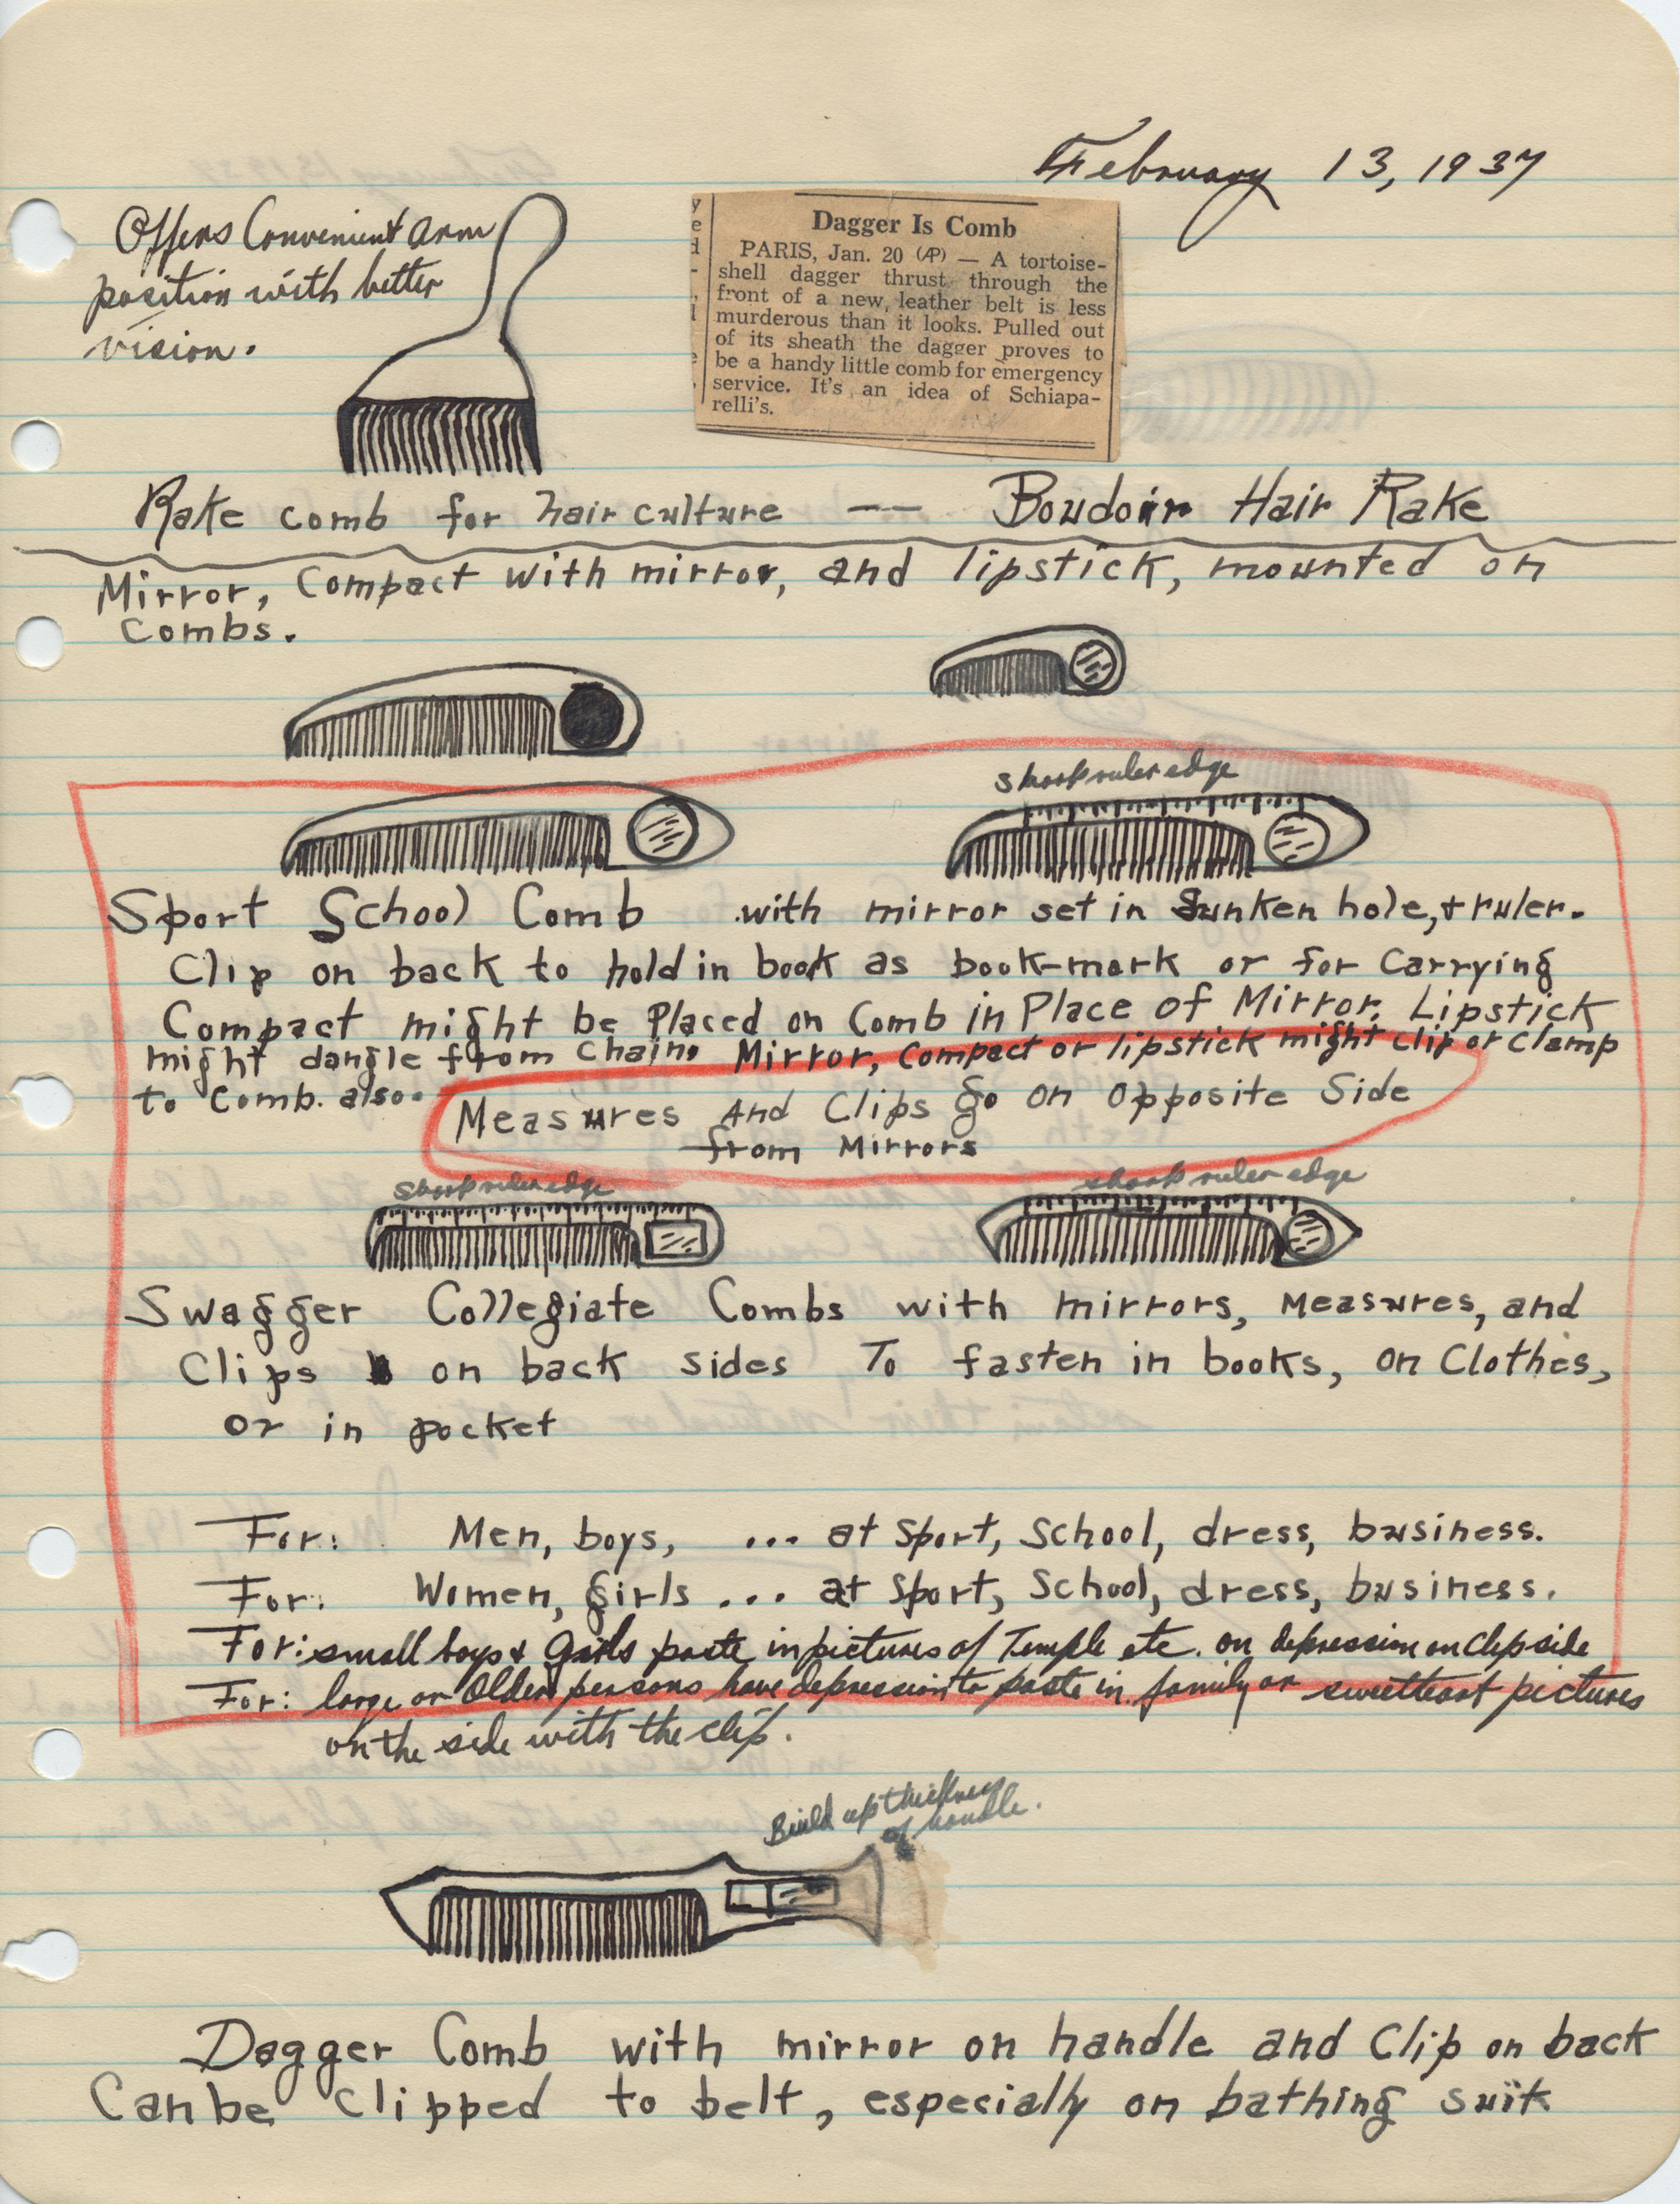 February 13, 1937
Offers Convenient arm
position with better
vision.
Dagger Is Comb
PARIS, Jan. 20 (AP) — A tortoise-
shell dagger thrust through the
front of a new leather belt is less
murderous than it looks. Pulled out
of its sheath the dagger proves to
be a handy little comb for emergency
service. It's an idea of Schiapa-
relli's.
Rake comb for hair culture —— Boudoir Hair Rake
Mirror, Compact with mirror, and lipstick, mounted on
Combs.
ruler edge
Sport School Comb with mirror set in Sunken hole, & ruler.
Clip on back to hold in book as book-mark or for Carrying
Compact might be Placed on Comb in Place of Mirror. Lipstick
might dangle from chain. Mirror, Compact or lipstick might clip or clamp
to Comb. also.
Measures And Clips go on opposite Side
from Mirrors
ruler edge
ruler edge
Swagger Collegiate Combs with mirrors, Measures, and
Clips on back sides To fasten in books, on Clothes,
or in pocket
For: Men, boys, ... at sport, School, dress, business.
For: Women, girls ... at sport, School, dress, business.
For: small boys & girls paste in pictures of Temple etc. on depression on clip side
For: large or Older persons have depression to paste in family or sweetheart pictures
on the side with the clip.
Build up thickness
of handle.
Dagger Comb with mirror on handle and Clip on back
Can be Clipped to belt, especially on bathing suit